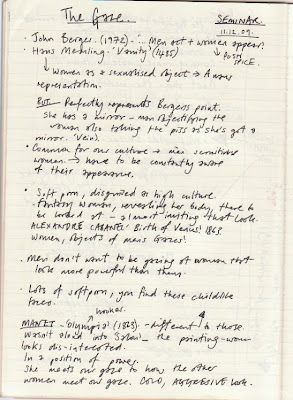 The Gaze.
SEMINAR
11.12.09.
· John Berger. (1972) - ∴ Men act + women appear.
↓ POSH SPICE.
· Hans Memling. 'Vanity' (1485)
↳ Women as a sexualised object → A mans
representation.
BUT - Perfectly represents Bergers point.
She has a mirror - man objectifying the
woman also taking the piss as she's got a
mirror. 'Vein'.
· Common for our culture → man sensitise
women → have to be constantly aware
of their appearance.
· Soft porn, disguised as high culture.
· Fantasy woman, revealing her body, there to
be looked at - almost inviting that look.
ALEXANDRE CABANEL 'Birth of Venus' 1863
Women, objects of mans gazes!
· Men don't want to be gazing at woman that
look more powerful than them.
· Lots of soft porn, you find these childlike
faces.
↗ hooker.
MANET - 'Olympia' (1863) - different to those.
Wasn't aloud into Salon - the painting - woman
looks dis-interested.
In a position of power.
She meets our gaze to how the other
women meet our gaze. COLD, AGGRESIVE look.